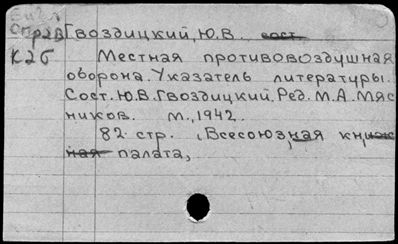 Спр2В Гвоздицкий, Ю.В. сост.
К26 Местная противовоздушная
оборона. Указатель литературы.
Сост. Ю.В. Гвоздицкий. Ред. М.А. Мяс
ников. М., 1942.
82 стр. (Всесоюзная книж
ная палата,